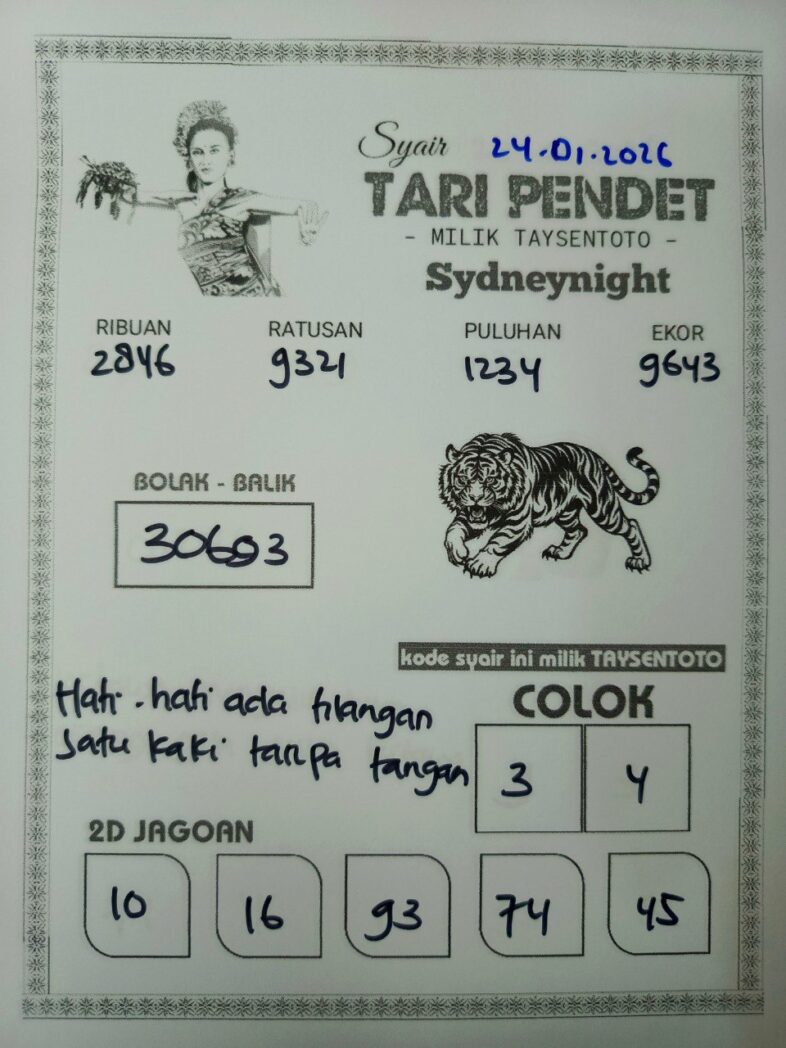 Syair 24.01.2026
TARI PENDET
- MILIK TAYSENTOTO -
Sydneynight
RIBUAN RATUSAN PULUHAN EKOR
2846 9321 1234 9643
BOLAK - BALIK
30693
kode syair ini milik TAYSENTOTO
Hati-hati ada tilangan
satu kaki tanpa tangan
COLOK
3 4
2D JAGOAN
10 16 93 74 45